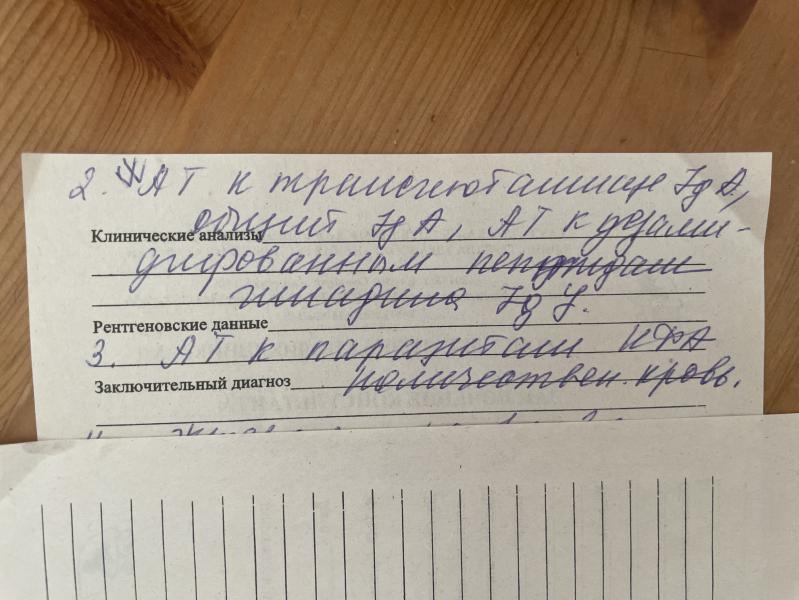 2. АТ к трансглютаминазе IgA,
общий IgA, АТ к дезами-
Клинические анализы
дированным пептидам
глиадина IgG.
Рентгеновские данные
3. АТ к паразитам ИФА
Заключительный диагноз
количествен. кровь.